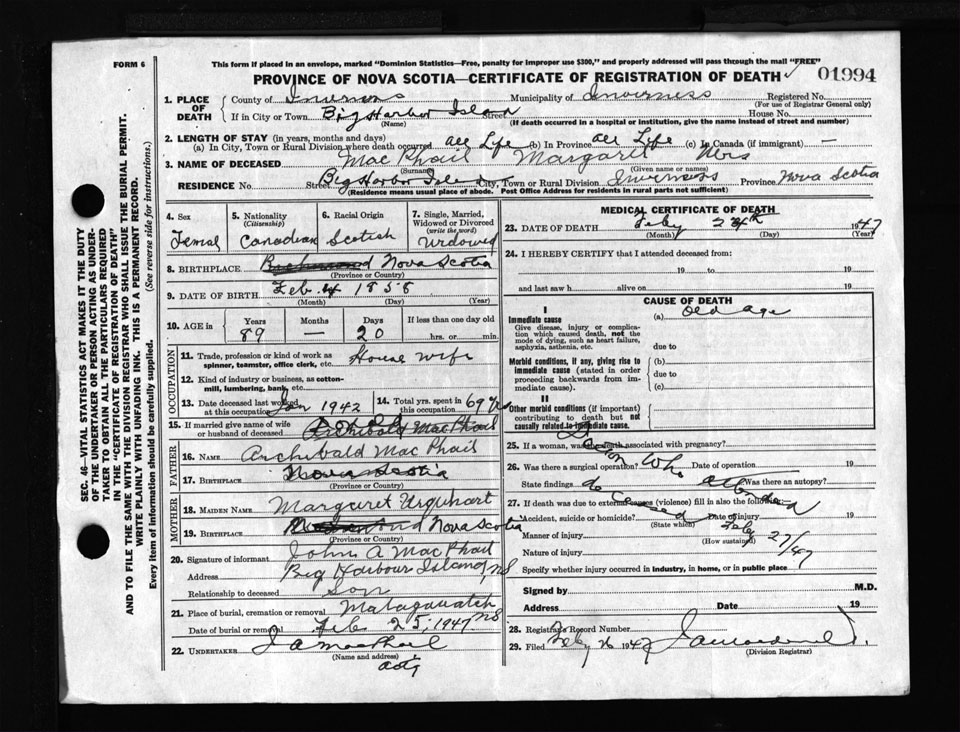 FORM 6
This form if placed in an envelope, marked "Dominion Statistics—Free, penalty for improper use $300," and properly addressed will pass through the mail "FREE"
PROVINCE OF NOVA SCOTIA—CERTIFICATE OF REGISTRATION OF DEATH
01994
1. PLACE OF DEATH
County of Inverness Municipality of Inverness Registered No.
(For use of Registrar General only)
If in City or Town Big Harbor Island Street House No.
(Name) (If death occurred in a hospital or institution, give the name instead of street and number)
2. LENGTH OF STAY (in years, months and days)
(a) In City, Town or Rural Division where death occurred all Life (b) In Province all Life (c) In Canada (if immigrant) —
3. NAME OF DECEASED Mac Phail Margaret Mrs
(Surname) (Given name or names)
RESIDENCE No. Street Big Harbor Island City, Town or Rural Division Inverness Province Nova Scotia
(Residence means usual place of abode. Post Office Address for residents in rural parts not sufficient)
4. Sex
Femal
5. Nationality (Citizenship)
Canadian
6. Racial Origin
Scotish
7. Single, Married, Widowed or Divorced (write the word)
Widowed
8. BIRTHPLACE Nova Scotia
(Province or Country)
9. DATE OF BIRTH Feb. 4 1858
(Month) (Day) (Year)
10. AGE in
Years Months Days If less than one day old
89 20 hrs. or min.
OCCUPATION
11. Trade, profession or kind of work as spinner, teamster, office clerk, etc. House wife
12. Kind of industry or business, as cotton-mill, lumbering, bank, etc.
13. Date deceased last worked at this occupation Jan 1942
14. Total yrs. spent in this occupation 69 yrs
15. If married give name of wife or husband of deceased Archibald MacPhail
FATHER
16. NAME Archibald Mac Phail
17. BIRTHPLACE Nova Scotia
(Province or Country)
MOTHER
18. MAIDEN NAME Margaret Urquhart
19. BIRTHPLACE Nova Scotia
(Province or Country)
20. Signature of informant John A MacPhail
Address Big Harbour Island, NS
Relationship to deceased Son
21. Place of burial, cremation or removal Malagawatch NS
Date of burial or removal Feb 25, 1947
22. UNDERTAKER J A MacPhail
(Name and address)
actg
MEDICAL CERTIFICATE OF DEATH
23. DATE OF DEATH Feby 24th 1947
(Month) (Day) (Year)
24. I HEREBY CERTIFY that I attended deceased from:
19 to 19
and last saw h alive on 19
CAUSE OF DEATH
I
Immediate cause
Give disease, injury or complication which caused death, not the mode of dying, such as heart failure, asphyxia, asthenia, etc.
(a) Old age
due to
Morbid conditions, if any, giving rise to immediate cause (stated in order proceeding backwards from immediate cause).
(b)
due to
(c)
II
Other morbid conditions (if important) contributing to death but not causally related to immediate cause.
25. If a woman, was the death associated with pregnancy?
26. Was there a surgical operation? Date of operation 19
State findings Was there an autopsy?
Son Who attended
deceased
27. If death was due to external causes (violence) fill in also the following:
Accident, suicide or homicide? Date of injury 19
(State which)
Manner of injury
(How sustained)
Feby 27/47
Nature of injury
Specify whether injury occurred in industry, in home, or in public place
Signed by M.D.
Address Date 19
28. Registrar's Record Number
29. Filed Feby 26 1947
(Division Registrar)
SEC. 46—VITAL STATISTICS ACT MAKES IT THE DUTY
OF THE UNDERTAKER OR PERSON ACTING AS UNDERTAKER TO OBTAIN ALL THE PARTICULARS REQUIRED
IN THE "CERTIFICATE OF REGISTRATION OF DEATH"
AND TO FILE THE SAME WITH THE DIVISION REGISTRAR WHO SHALL ISSUE THE BURIAL PERMIT.
WRITE PLAINLY WITH UNFADING INK. THIS IS A PERMANENT RECORD.
Every item of information should be carefully supplied. (See reverse side for instructions.)